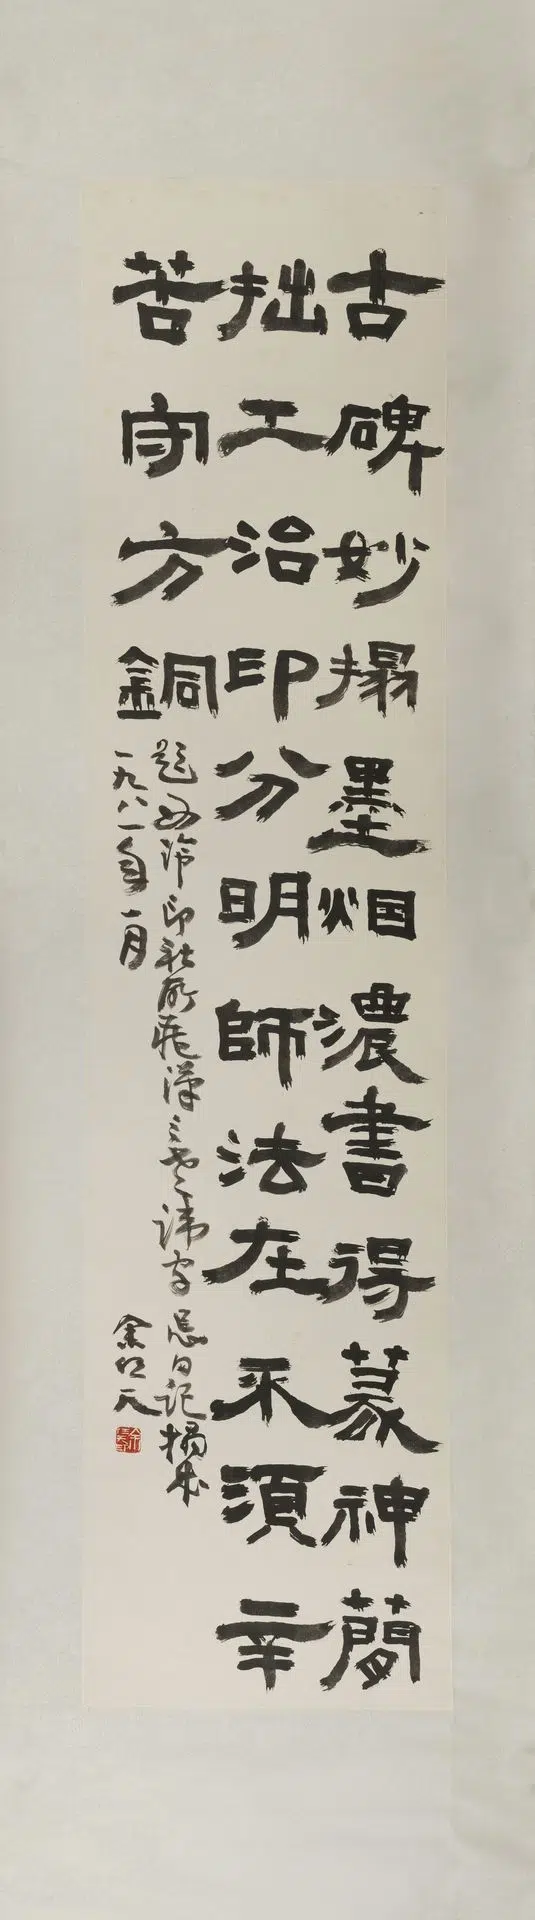 古碑妙搨墨烟濃書得篆神簡
拙工治印分明師法在不須辛
苦守方銅
題西泠印社所藏漢三老諱字忌日記搨本
一九八一年一月
余任天